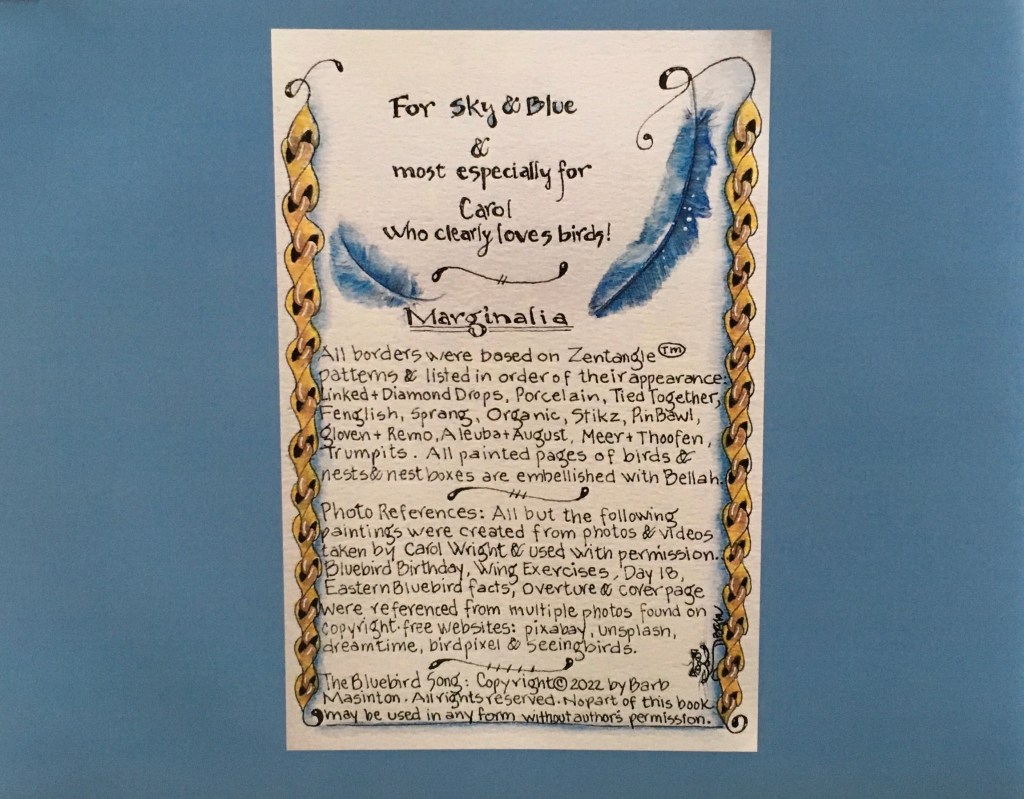 For Sky & Blue
&
most especially for
Carol
who clearly loves birds!
Marginalia
All borders were based on Zentangle TM
patterns & listed in order of their appearance:
Linked + Diamond Drops, Porcelain, Tied Together,
Fenglish, Sprang, Organic, Stikz, PinBawl,
Gloven + Remo, Aleuba + August, Meer + Thoofen,
Trumpits. All painted pages of birds &
nests & nest boxes are embellished with Bellah.
Photo References: All but the following
paintings were created from photos & videos
taken by Carol Wright & used with permission.
Bluebird Birthday, Wing Exercises, Day 18,
Eastern Bluebird facts, Overture & cover page
were referenced from multiple photos found on
copyright-free websites: pixabay, unsplash,
dreamtime, birdpixel & seeingbirds.
The Bluebird Song: Copyright © 2022 by Barb
Masinton. All rights reserved. No part of this book
may be used in any form without author's permission.